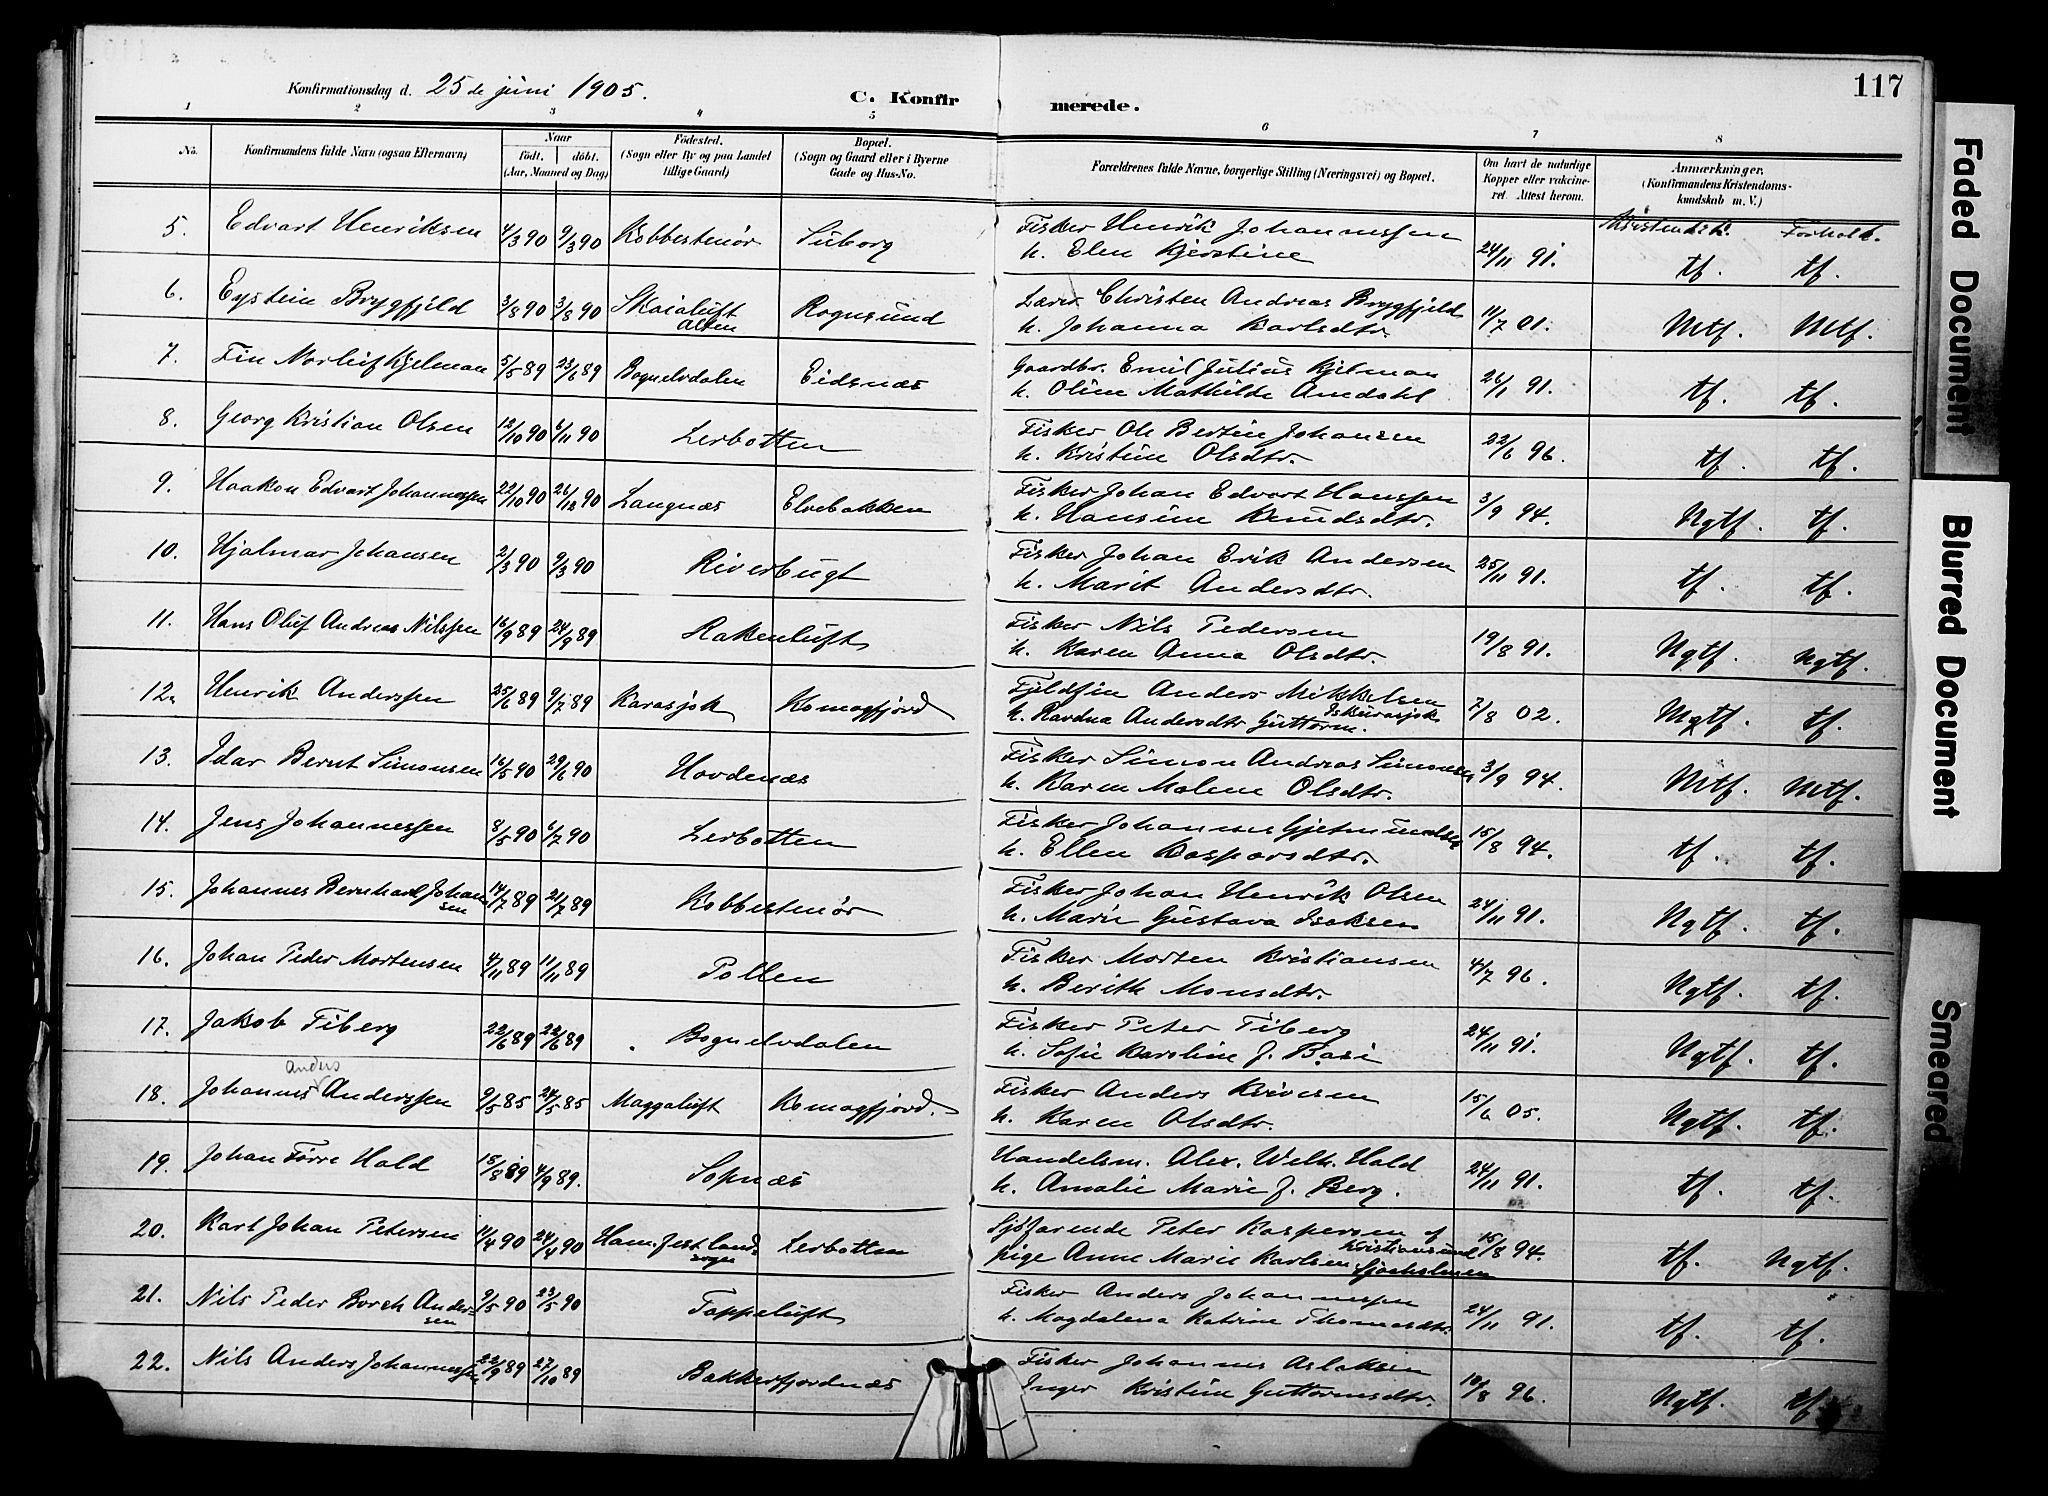 117
Konfirmationsdag d. 25de juni 1905.
C. Konfirmerede.
1 2 3 4 5 6 7 8
No. Konfirmandens fulde Navn (ogsaa Efternavn) Naar født. døbt. (Aar, Maaned og Dag) Fødested. (Sogn eller By og paa Landet tillige Gaard) Bopæl. (Sogn og Gaard eller i Byerne Gade og Hus-No. Forældrenes fulde Navne, borgerlige Stilling (Næringsvei) og Bopæl. Om havt de naturlige Kopper eller vakcineret. Attest herom. Anmærkninger. (Konfirmandens Kristendomskundskab m. V.)
Kristendsk. Forhold.
5. Edvart Henriksen 4/3 90 9/3 90 Kobbestenør Siuborg Fisker Henrik Johannessen
h. Elen Kjerstine 24/11 91. tf. tf.
6. Eystein Brygfjeld 3/8 90 3/8 90 Skaialuft Alten Rognsund Lærer Christen Andreas Brygfjeld
h. Johanna Karlsdtr. 11/7 01. Mtf. Mtf.
7. Fin Norleif Kjelman 5/5 89 23/6 89 Bognelvdalen Eidsnæs Gaardbr. Emil Julius Kjelman
h. Oline Mathilde Amdahl 26/1 91. tf. tf.
8. Georg Kristian Olsen 12/10 90 6/11 90 Lerbotten Fisker Ole Bertin Johansen
h. Kristine Olsdtr. 22/6 96. tf. tf.
9. Haakon Edvart Johannessen 22/10 90 26/12 90 Langnæs Elvebakken Fisker Johan Edvart Hanssen
h. Hansine Knudsdtr. 3/9 94. Ngtf. tf.
10. Hjalmar Johansen 2/3 90 9/3 90 Riverbugt Fisker Johan Erik Andersen
h. Marit Andersdtr. 25/11 91. tf. tf.
11. Hans Oluf Andreas Nilssen 16/9 89 24/9 89 Rakenluft Fisker Nils Pedersen
h. Karen Anna Olsdtr. 19/8 91. Ngtf. Ngtf.
12. Henrik Anderssen 25/6 89 9/7 89 Karasjok Komagfjord Fjeldfin Anders Mikkelsen
h. Ravdna Andersdtr Guttorm. Iskurasjok 7/8 02. Mgtf. tf.
13. Idar Bernt Simonsen 16/5 90 29/6 90 Hovdenæs Fisker Simon Andreas Simonsen
h. Karen Malene Olsdtr. 3/9 94. Mtf. Mtf.
14. Jens Johannessen 8/5 90 6/7 90 Lerbotten Fisker Johannes Gjetmundsen
h. Ellen Kaspersdtr. 15/8 94. tf. tf.
15. Johannes Bernhard Johansen 14/7 89 21/7 89 Kobbestenør Fisker Johan Henrik Olsen
h. Marie Gustava Isaksen 24/11 91. Ngtf. tf.
16. Johan Peder Mortensen 4/11 89 11/11 89 Pollen Fisker Morten Kristiansen
h. Berith Monsdtr. 4/7 96. Ngtf. tf.
17. Jakob Tiberg 22/6 89 22/6 89 Bognelvdalen Fisker Peter Tiberg
h. Sofie Karoline f. Basi 24/11 91. Ngtf. tf.
anders
18. Johannes Anderssen 9/5 85 24/5 85 Maggaluft Komagfjord. Fisker Anders Iversen
h. Karen Olsdtr. 15/6 05. Ngtf. tf.
19. Johan Førre Hald 18/8 89 4/9 89. Sopnæs Handelsm. Alex. Welh. Hald
h. Amalie Marie f. Berg. 24/11 91. tf. tf.
20. Karl Johan Petersen 11/4 90 24/4 90 Hammerfest landsogn Lerbotten Sjøfarende Peter Kaspersen af Kristiansund
pige Anne Marie Karlsen Sjøholmen 15/8 94. tf. Ngtf.
21. Nils Peder Borch Andersen 9/5 90 23/5 90 Tappeluft Fisker Anders Johannessen
h. Magdalena Katrine Thomasdtr. 24/11 91. tf. tf.
22. Nils Anders Johannessen 22/9 89 27/10 89 Bakkerfjordnæs Fisker Johannes Aslaksen
Inger Kristine Guttormsdtr. 10/8 96. Ngtf. tf.
Faded Document
Blurred Document
Smeared